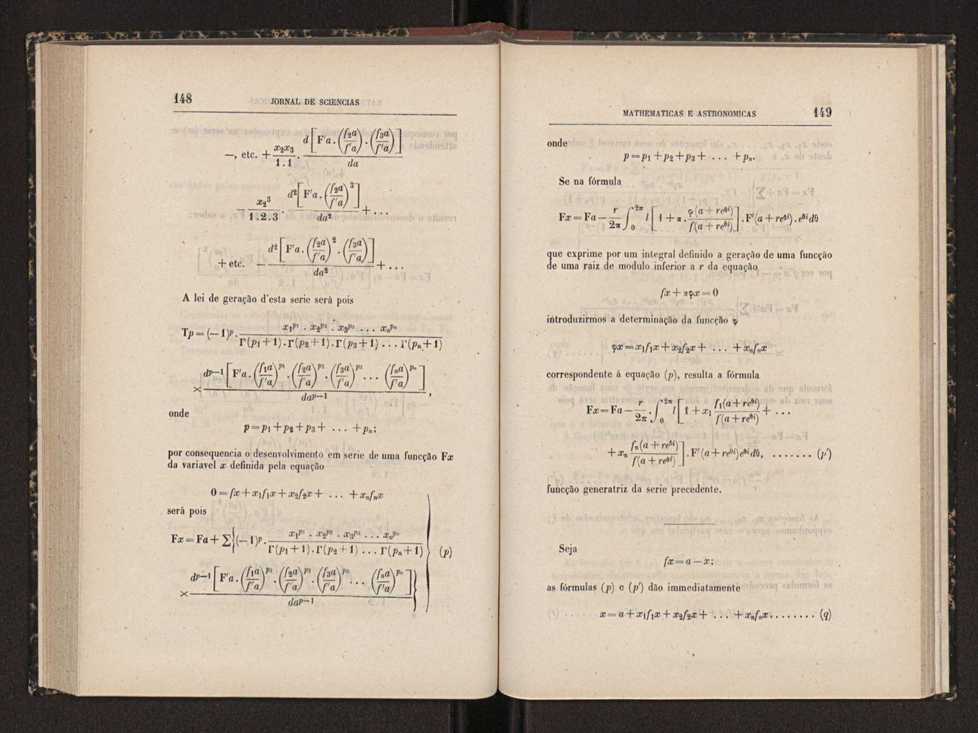 148 JORNAL DE SCIENCIAS
—, etc. + x₂x₃/1.1 . d[F'a.(f₂a/f'a).(f₃a/f'a)]/da
− x₂³/1.2.3 . d²[F'a.(f₂a/f'a)³]/da² + ...
+ etc. − d²[F'a.(f₂a/f'a)².(f₃a/f'a)]/da² + ...
A lei de geração d'esta serie será pois
Tp = (−1)ᵖ . x₁ᵖ¹ . x₂ᵖ² . x₃ᵖ³ ... xₙᵖⁿ/Γ(p₁+1).Γ(p₂+1).Γ(p₃+1) ... Γ(pₙ+1)
× dᵖ⁻¹[F'a.(f₁a/f'a)ᵖ¹.(f₂a/f'a)ᵖ².(f₃a/f'a)ᵖ³ ... (fₙa/f'a)ᵖⁿ]/daᵖ⁻¹,
onde
p = p₁ + p₂ + p₃ + ... + pₙ;
por consequencia o desenvolvimento em serie de uma funcção Fx
da variavel x definida pela equação
0 = fx + x₁f₁x + x₂f₂x + ... + xₙfₙx
será pois
Fx = Fa + Σ{(−1)ᵖ . x₁ᵖ¹ . x₂ᵖ² . x₃ᵖ³ ... xₙᵖⁿ/Γ(p₁+1).Γ(p₂+1) ... Γ(pₙ+1)
(p)
× dᵖ⁻¹[F'a.(f₁a/f'a)ᵖ¹.(f₂a/f'a)ᵖ².(f₃a/f'a)ᵖ³ ... (fₙa/f'a)ᵖⁿ]/daᵖ⁻¹}
MATHEMATICAS E ASTRONOMICAS 149
onde
p = p₁ + p₂ + p₃ + ... + pₙ.
Se na fórmula
Fx = Fa − r/2π ∫₀²π l[1 + α . φ(a + reθi)/f(a + reθi)] . F'(a + reθi) . eθi dθ
que exprime por um integral definido a geração de uma funcção
de uma raiz de modulo inferior a r da equação
fx + αφx = 0
introduzirmos a determinação da funcção φ
φx = x₁f₁x + x₂f₂x + ... + xₙfₙx
correspondente á equação (p), resulta a fórmula
Fx = Fa − r/2π . ∫₀²π l[1 + x₁ f₁(a + reθi)/f(a + reθi) + ...
+ xₙ fₙ(a + reθi)/f(a + reθi)] . F'(a + reθi)eθi dθ, ....... (p')
funcção generatriz da serie precedente.
Seja
fx = a − x;
as fórmulas (p) e (p') dão immediatamente
x = a + x₁f₁x + x₂f₂x + ... + xₙfₙx ........ (q)